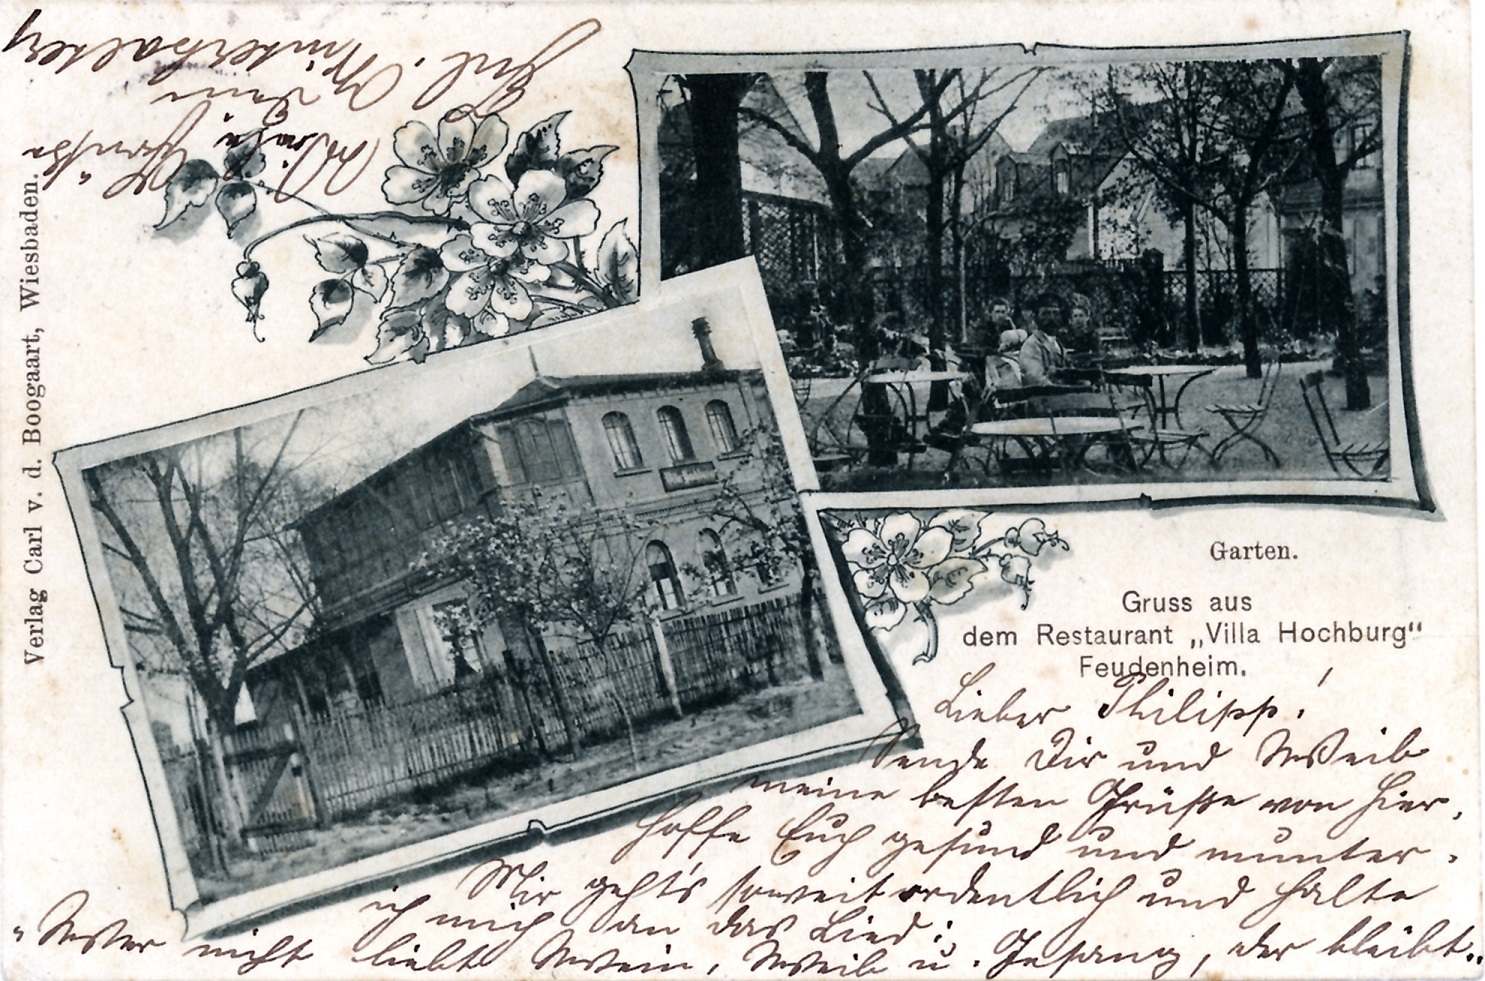 Verlag Carl v. d. Boogaart, Wiesbaden.
Garten.
Gruss aus
dem Restaurant „Villa Hochburg“
Feudenheim.
Lieber Philipp!
Sende Dir und Weib
meine besten Grüße von hier.
Hoffe Euch gesund und munter.
Mir geht's soweit ordentlich und halte
ich mich an das Lied:
„Wer nicht liebt Wein, Weib u. Gesang, der bleibt..
Grüße
Dein